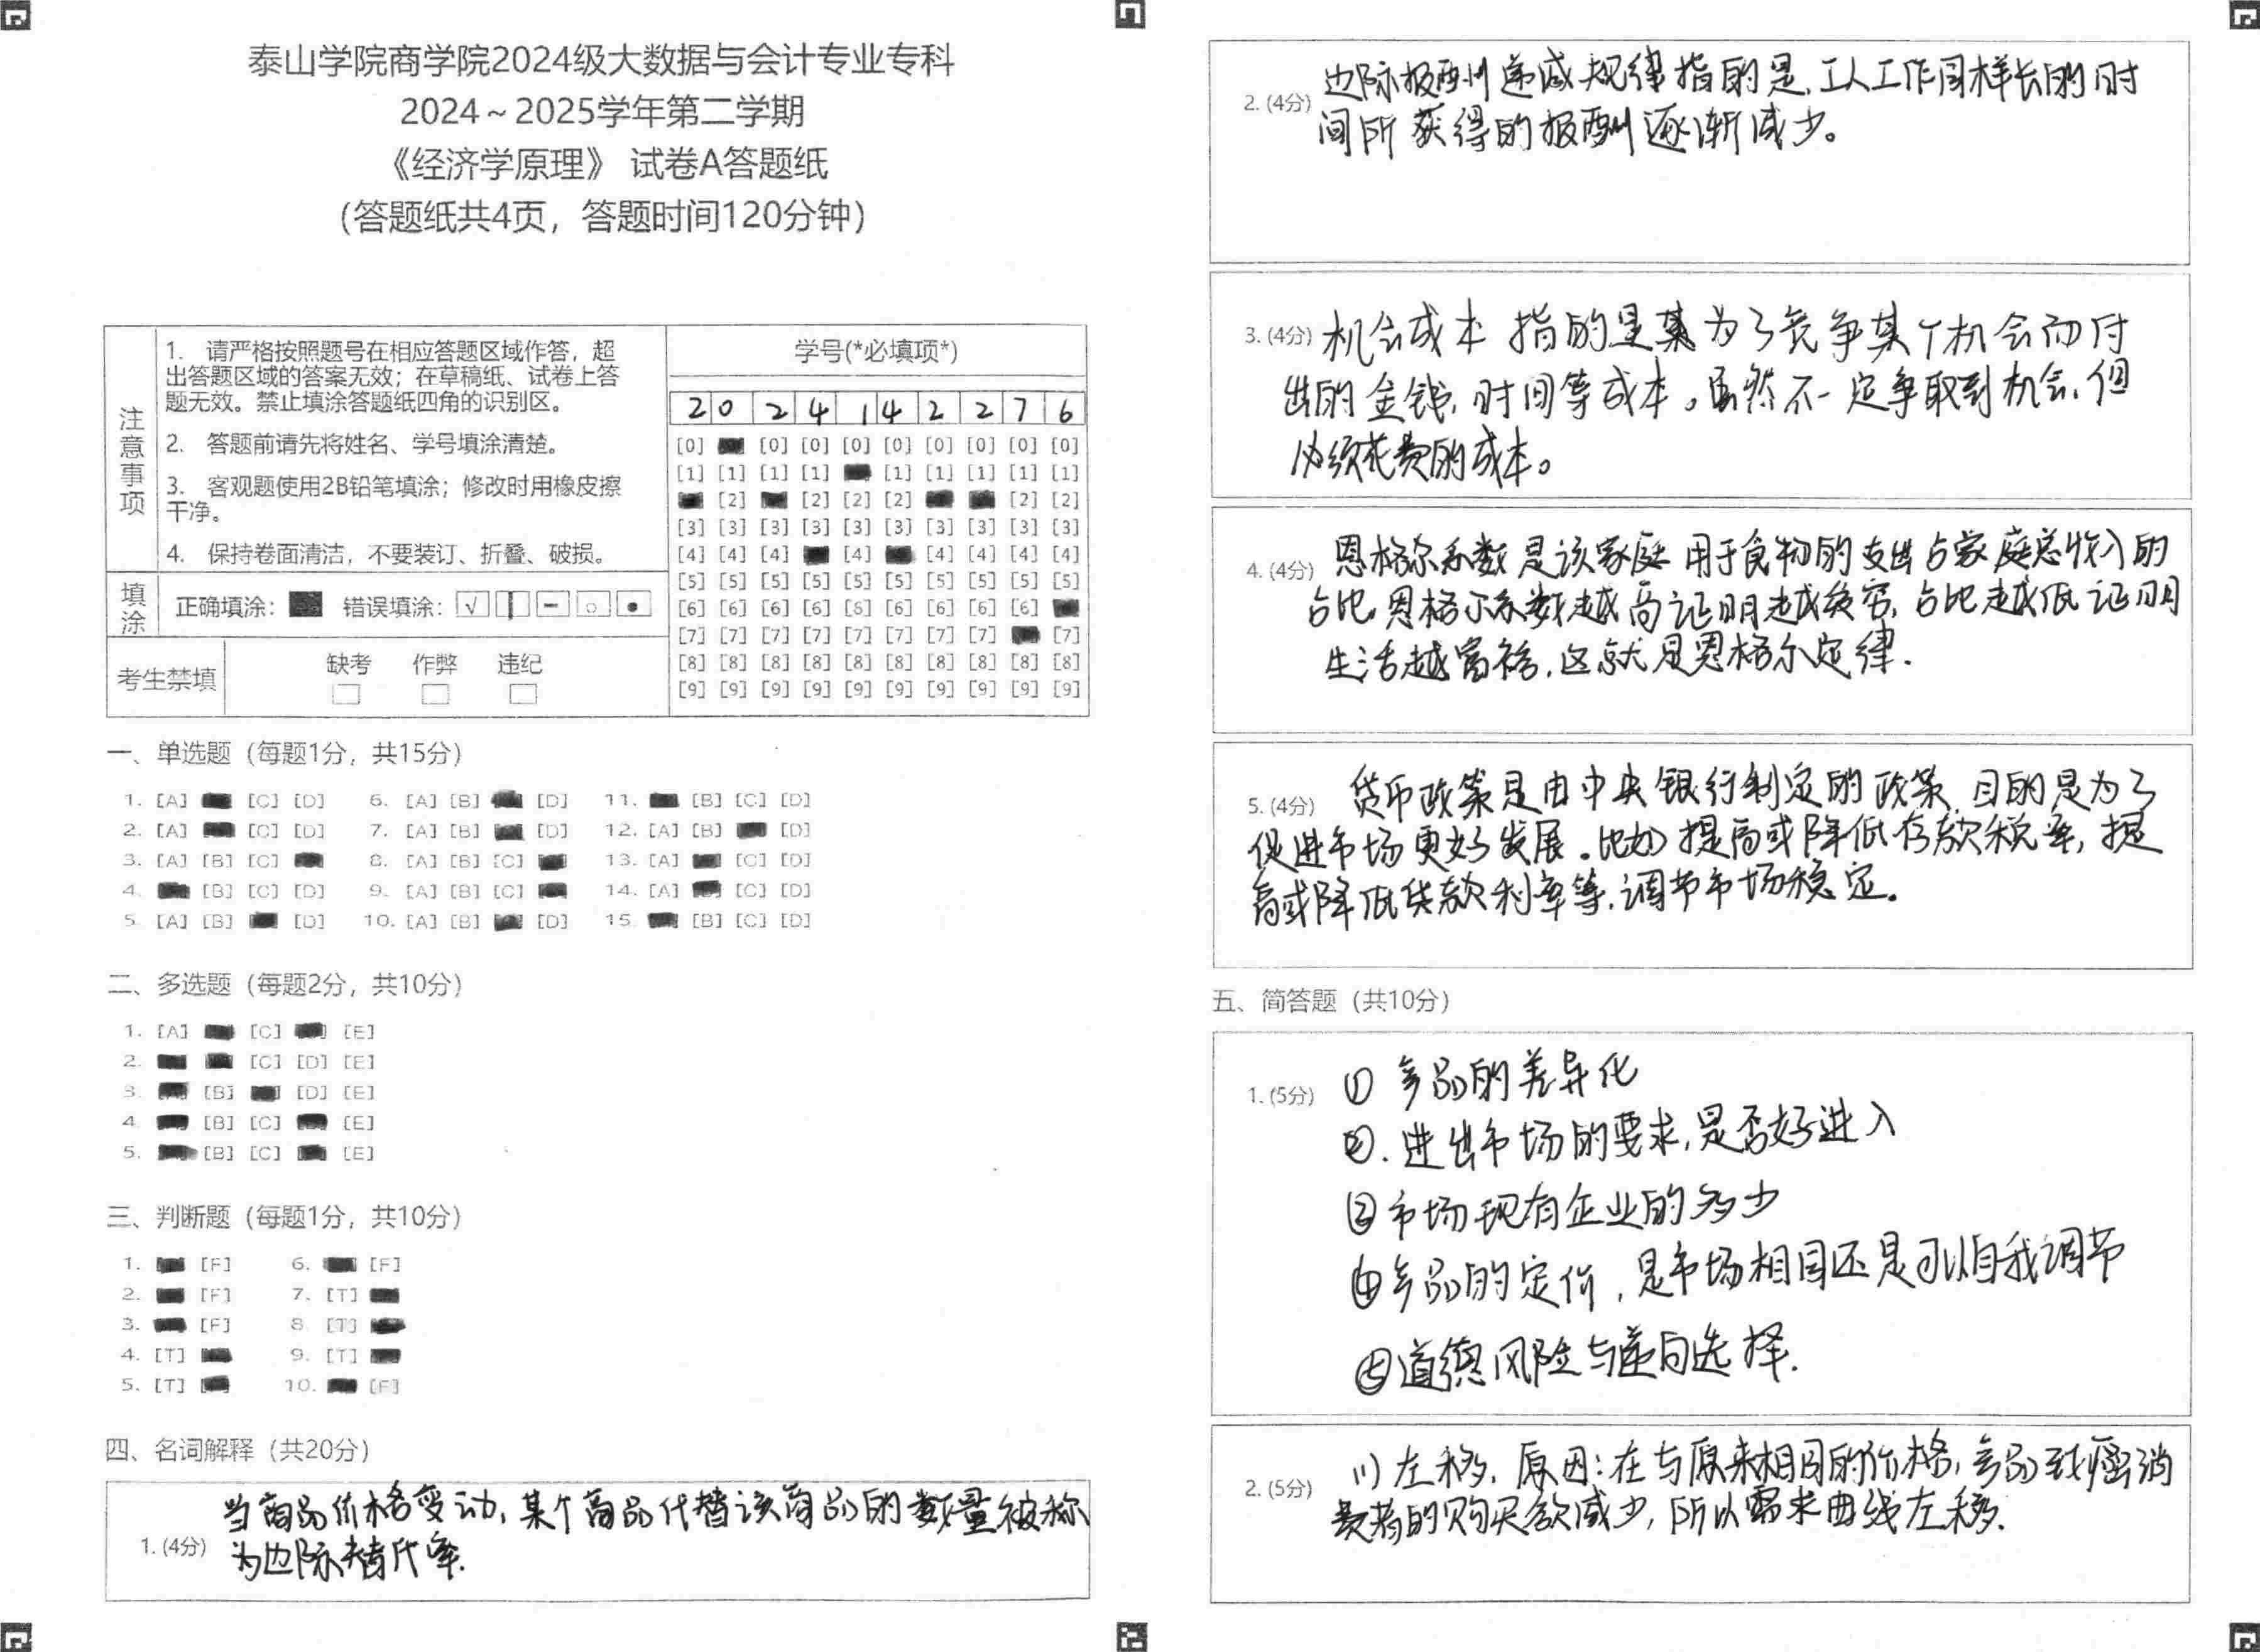 泰山学院商学院2024级大数据与会计专业专科
2024～2025学年第二学期
《经济学原理》 试卷A答题纸
（答题纸共4页，答题时间120分钟）
注意事项
1. 请严格按照题号在相应答题区域作答，超
出答题区域的答案无效；在草稿纸、试卷上答
题无效。禁止填涂答题纸四角的识别区。
2. 答题前请先将姓名、学号填涂清楚。
3. 客观题使用2B铅笔填涂；修改时用橡皮擦
干净。
4. 保持卷面清洁，不要装订、折叠、破损。
填涂
正确填涂： 错误填涂：
考生禁填
缺考 作弊 违纪
学号(*必填项*)
2 0 2 4 1 4 2 2 7 6
[0] [0] [0] [0] [0] [0] [0] [0] [0]
[1] [1] [1] [1] [1] [1] [1] [1] [1]
[2] [2] [2] [2] [2] [2]
[3] [3] [3] [3] [3] [3] [3] [3] [3] [3]
[4] [4] [4] [4] [4] [4] [4] [4]
[5] [5] [5] [5] [5] [5] [5] [5] [5] [5]
[6] [6] [6] [6] [6] [6] [6] [6] [6]
[7] [7] [7] [7] [7] [7] [7] [7] [7]
[8] [8] [8] [8] [8] [8] [8] [8] [8] [8]
[9] [9] [9] [9] [9] [9] [9] [9] [9] [9]
一、单选题（每题1分，共15分）
1. [A] [C] [D] 6. [A] [B] [D] 11. [B] [C] [D]
2. [A] [C] [D] 7. [A] [B] [D] 12. [A] [B] [D]
3. [A] [B] [C] 8. [A] [B] [C] 13. [A] [C] [D]
4. [B] [C] [D] 9. [A] [B] [C] 14. [A] [C] [D]
5. [A] [B] [D] 10. [A] [B] [D] 15. [B] [C] [D]
二、多选题（每题2分，共10分）
1. [A] [C] [E]
2. [C] [D] [E]
3. [B] [D] [E]
4. [B] [C] [E]
5. [B] [C] [E]
三、判断题（每题1分，共10分）
1. [F] 6. [F]
2. [F] 7. [T]
3. [F] 8. [T]
4. [T] 9. [T]
5. [T] 10. [F]
四、名词解释（共20分）
1. (4分) 当商品价格变动，某个商品代替该商品的数量被称
为边际替代率.
2. (4分) 边际报酬递减规律指的是，工人工作同样长的时
间所获得的报酬逐渐减少。
3. (4分) 机会成本指的是某为了竞争某个机会而付
出的金钱，时间等成本。虽然不一定争取到机会，但
必须花费的成本。
4. (4分) 恩格尔系数是该家庭用于食物的支出占家庭总收入的
占比，恩格尔系数越高证明越贫穷，占比越低证明
生活越富裕，这就是恩格尔定律.
5. (4分) 货币政策是由中央银行制定的政策，目的是为了
促进市场更好发展。比如提高或降低存款税率，提
高或降低贷款利率等，调节市场稳定。
五、简答题（共10分）
1. (5分) ① 产品的差异化
②. 进出市场的要求，是否好进入
③市场现有企业的多少
④产品的定价，是市场相同还是可以自我调节
⑤道德风险与逆向选择.
2. (5分) (1) 左移，原因：在与原来相同的价格，产品致癌消
费者的购买欲减少，所以需求曲线左移.